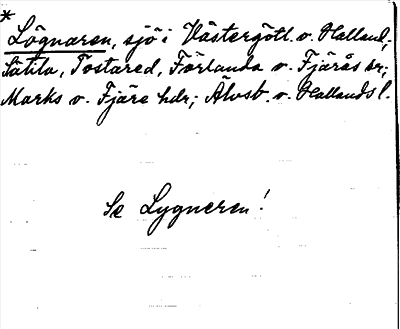 *
Lögnaren, sjö i Västergötl. o. Halland;
Sätila, Tostared, Förlanda o. Fjärås snr;
Marks o. Fjäre hdr; Älvsb. o. Hallands l.
Se Lygneren!